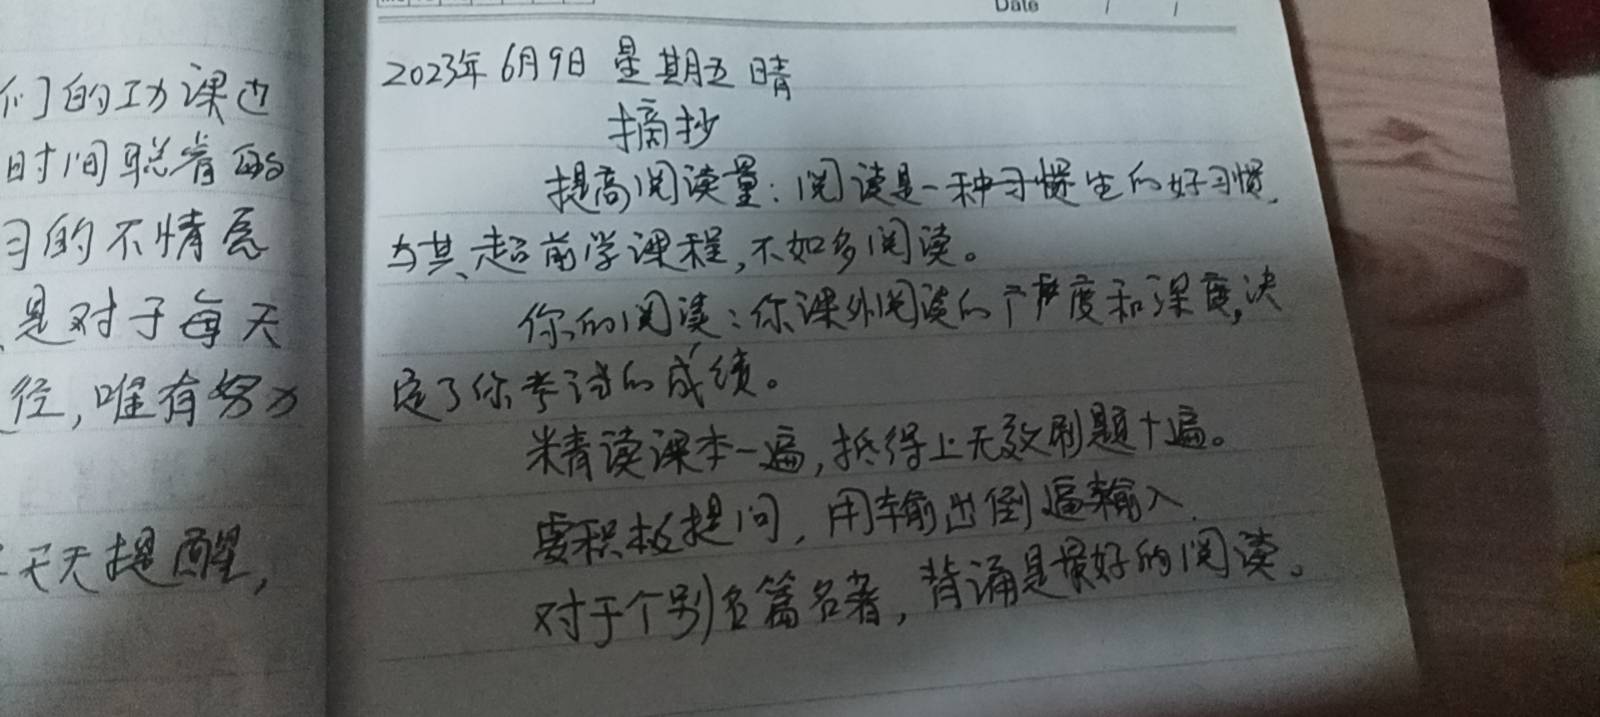 们的功课也
时间聪着的
习的不情愿
是对于每天
径,唯有努力
天天提醒,
Date / /
2023年6月9日 星期五 晴
摘抄
提高阅读量:阅读是一种习惯生的好习惯,
与其超前学课程,不如多阅读。
你的阅读:你课外阅读的广度和深度,决
定了你考试的成绩。
精读课本一遍,抵得上无效刷题十遍。
要积极提问,用输出倒逼输入.
对于个别名篇名著,背诵是最好的阅读。